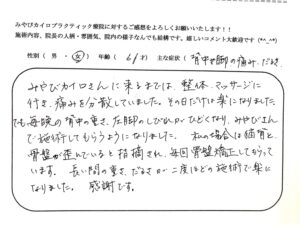 みやびカイロプラクティック療院に対するご感想をよろしくお願いいたします!!
施術内容、院長の人柄・雰囲気、院内の様子なんでも結構です。嬉しいコメント大歓迎です
性別(男・女) 年齢( 61才 主な症状( 背中や脚の痛み、だるさ
みやびカイロさんに来るまでは、整体、マッサージに
行き、痛みを分散していました。その日だけは楽になりました。
でも毎晩の背中の重さ、左脚のしびれがひどくなり、みやびさん
で施術してもらうようになりました。私の場合は猫背と、
骨盤が歪んでいると指摘され、毎回骨盤矯正してもらって
います。長い間の重さ、だるさが二度ほどの施術で楽に
なりました。感謝です。